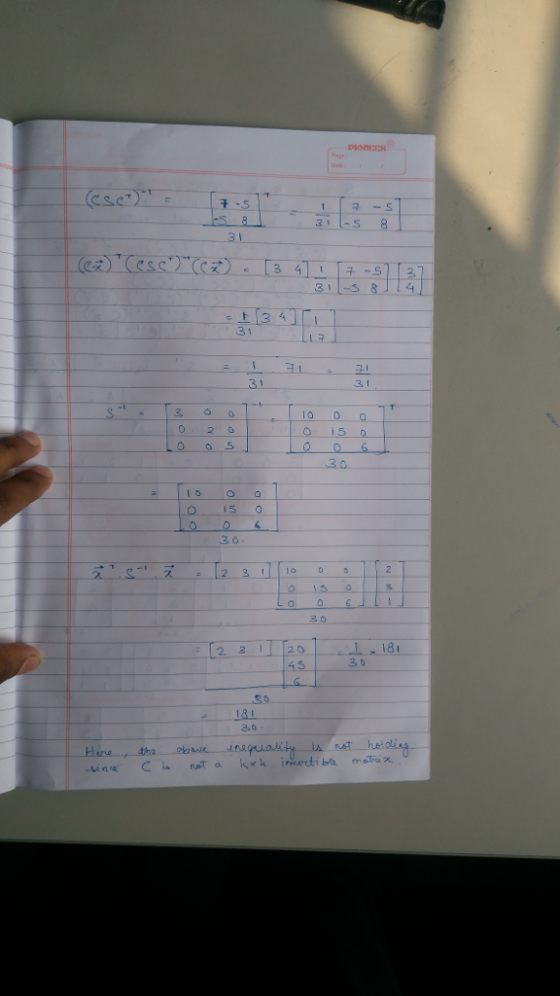 PIONEER
Page:
Date: / /
(CSC^T)^-1 = [7 -5; -5 8]^T / 31 = 1/31 [7 -5; -5 8]
(Cx⃗)^T (CSC^T)^-1 (Cx⃗) = [3 4] 1/31 [7 -5; -5 8] [3; 4]
= 1/31 [3 4] [1; 17]
= 1/31 . 71 = 71/31.
S^-1 = [3 0 0; 0 2 0; 0 0 5]^-1 = [10 0 0; 0 15 0; 0 0 6]^T / 30
= [10 0 0; 0 15 0; 0 0 6] / 30.
x⃗^T . S^-1 . x⃗ = [2 3 1] [10 0 0; 0 15 0; 0 0 6] / 30 [2; 3; 1]
= [2 3 1] [20; 45; 6] / 30 = 1/30 × 181
= 181/30.
Here, the above inequality is not holding
since C is not a k×k invertible matrix.